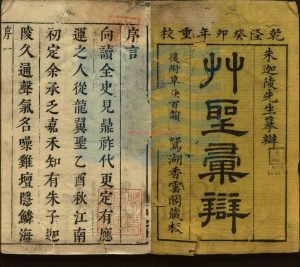 乾隆癸卯年重校
朱迦陵先生纂辯
艸聖彙辯
後附草訣百韻 鴛湖香雲閣藏板
序言
向讀全史見鼎祚代更定有應
運之人從龍翼聖乙酉秋江南
初定余承乏嘉禾知有朱子迦
陵久通聲氣名噪雞壇隱鱗海